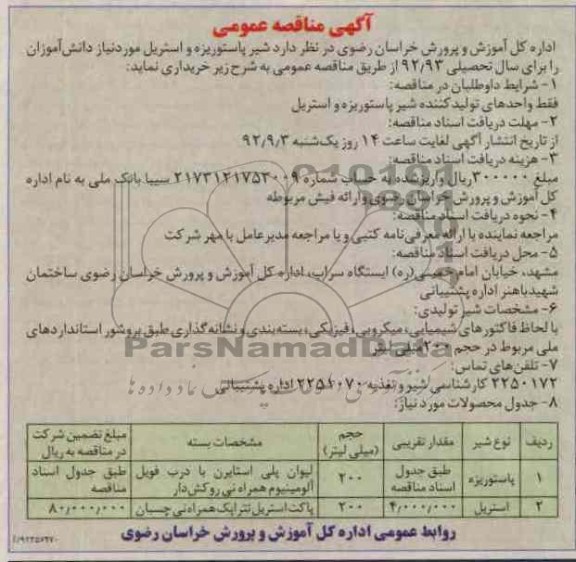 آگهی مناقصه عمومی
اداره کل آموزش و پرورش خراسان رضوی در نظر دارد شیر پاستوریزه و استریل موردنیاز دانش‌آموزان
را برای سال تحصیلی ۹۲/۹۳ از طریق مناقصه عمومی به شرح زیر خریداری نماید:
۱- شرایط داوطلبان در مناقصه:
فقط واحدهای تولیدکننده شیر پاستوریزه و استریل
۲- مهلت دریافت اسناد مناقصه:
از تاریخ انتشار آگهی لغایت ساعت ۱۴ روز یک‌شنبه ۹۲/۹/۳
۳- هزینه دریافت اسناد مناقصه:
مبلغ ۳۰۰۰۰۰ ریال واریز شده به حساب شماره ۲۱۷۳۱۲۱۷۵۳۰۰۹ سیبا بانک ملی به نام اداره
کل آموزش و پرورش خراسان رضوی و ارائه فیش مربوطه
۴- نحوه دریافت اسناد مناقصه:
مراجعه نماینده با ارائه معرفی‌نامه کتبی و یا مراجعه مدیرعامل با مهر شرکت
۵- محل دریافت اسناد مناقصه:
مشهد، خیابان امام خمینی(ره) ایستگاه سراب، اداره کل آموزش و پرورش خراسان رضوی ساختمان
شهید باهنر اداره پشتیبانی
۶- مشخصات شیر تولیدی:
با لحاظ فاکتورهای شیمیایی، میکروبی، فیزیکی، بسته‌بندی و نشانه‌گذاری طبق بروشور استانداردهای
ملی مربوط در حجم ۲۰۰ میلی لیتر
ParsNamadData
۷- تلفن‌های تماس:
۲۲۵۰۱۷۲ کارشناسی شیر و تغذیه ۲۲۵۱۰۷۰ اداره پشتیبانی
۸- جدول محصولات مورد نیاز:
ردیف نوع شیر مقدار تقریبی حجم (میلی لیتر) مشخصات بسته مبلغ تضمین شرکت در مناقصه به ریال
۱ پاستوریزه طبق جدول اسناد مناقصه ۲۰۰ لیوان پلی استایرن با درب فویل آلومینیوم همراه نی روکش‌دار طبق جدول اسناد مناقصه
۲ استریل ۴,۰۰۰,۰۰۰ ۲۰۰ پاکت استریل تتراپک همراه نی چسبان ۸۰,۰۰۰,۰۰۰
روابط عمومی اداره کل آموزش و پرورش خراسان رضوی